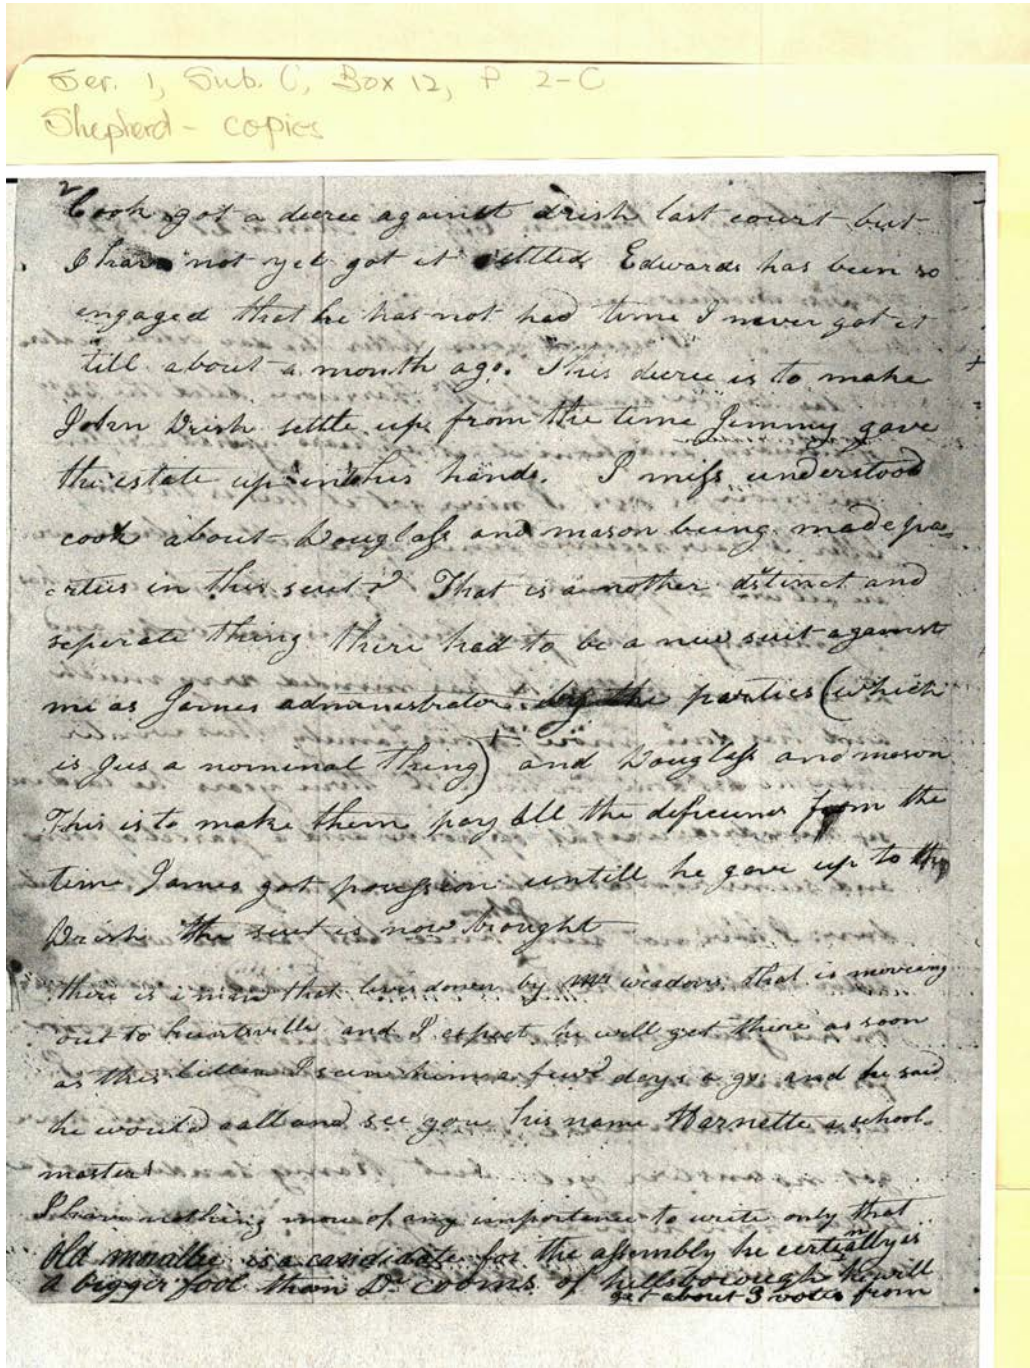 Ser. 1, Sub. C, Box 12, F 2-C
Shepherd - copies
2
Cook got a decree against Drish last court but
I have not yet got it settled Edwards has been so
engaged that he has not had time I never got it
till about a month ago. This decree is to make
John Drish settle up from the time Jemmy gave
the estate up into his hands. I miss understood
cook about Douglass and mason being made pa=
=rties in this suit That is a nother distinct and
seperate thing there had to be a new suit against
me as James administrator by the parties (which
is jus a nominal thing) and Douglass and mason
This is to make them pay all the deficiency from the
time James got possession untill he gave up to
Drish the suit is now brought
there is a man that lives down by Mrs weadons that is moveing
out to huntsville and I expect he will get there as soon
as this letter I seen him a few days a go and he said
he would call and see you his name Harnette a school-
master
I have nothing more of any importance to write only that
Old is a candidate for the assembly he certinally is
a bigger fool than Dr cooms of hillsborough he will
get about 3 votes from